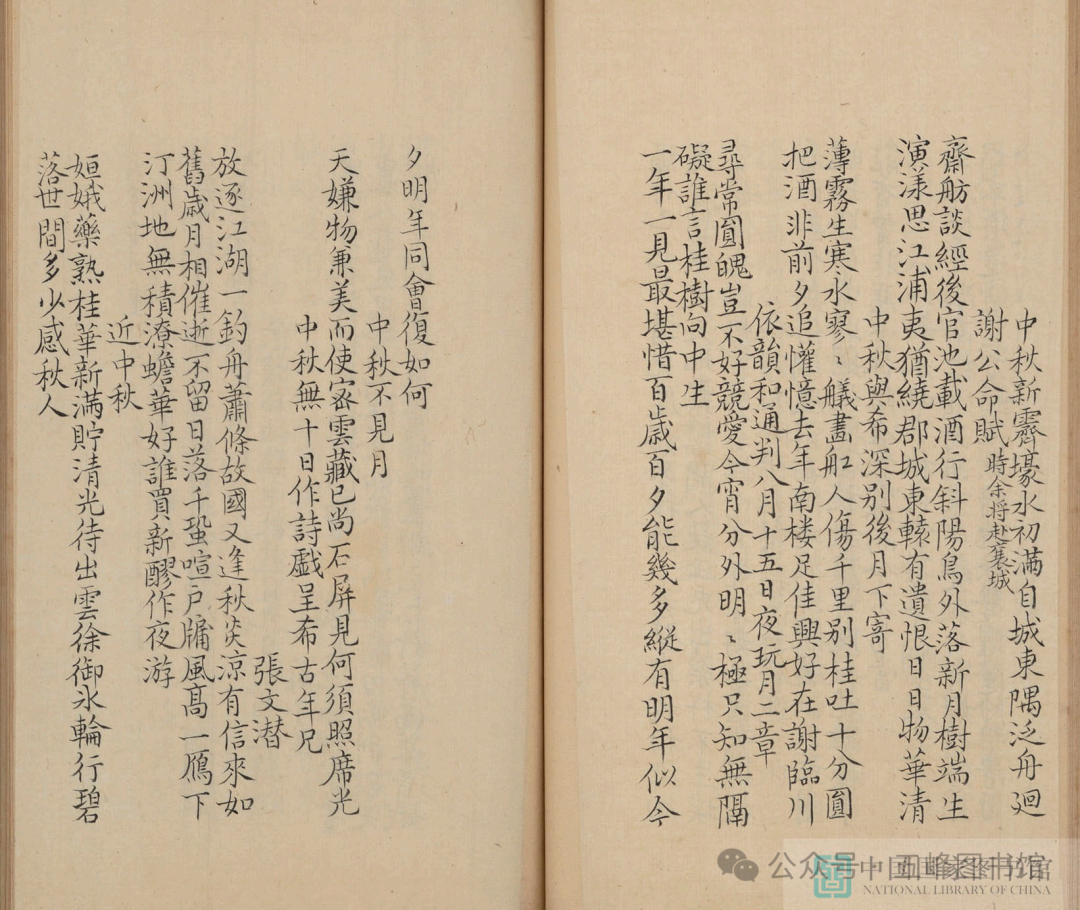 中秋新霽壕水初滿自城東隅泛舟廻
謝公命賦 時余将赴襄城
齋舫談經後官池載酒行斜陽鳥外落新月樹端生
演漾思江浦夷猶繞郡城東轅有遺恨日日物華清
中秋與希深别後月下寄
薄霧生寒水寥〻艤畵舡人傷千里别桂吐十分圓
把酒非前夕追懽憶去年南楼足佳興好在謝臨川
依韻和通判八月十五日夜玩月二章
尋常圓魄豈不好競愛今宵分外明〻極只知無隔
礙誰言桂樹向中生
一年一見最堪惜百歳百夕能幾多縱有明年似今
夕明年同會復如何
中秋不見月
天嫌物兼美而使密雲藏已尚石屏見何須照席光
中秋無十日作詩戯呈希古年兄
張文潜
放逐江湖一釣舟蕭條故國又逢秋炎涼有信來如
舊歳月相催逝不留日落千蛩喧戸牖風髙一鴈下
汀洲地無積潦蟾華好誰買新醪作夜游
近中秋
姮娥藥熟桂華新滿貯清光待出雲徐御氷輪行碧
落世間多少感秋人
公众号·五峰图书馆
中国国家图书馆
NATIONAL LIBRARY OF CHINA